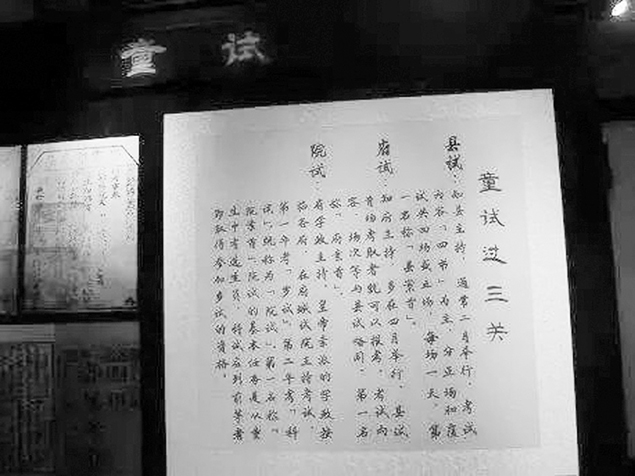 童试
童试过三关
县试：知县主持，通常二月举行，考试
内容“四书”为主，分正场和覆
试共四场或五场，每场一天，第
一名称“县案首”。
府试：知府主持，多在四月举行，县试
首场考取者就可以报考，考试内
容、场次等与县试略同，第一名
称“府案首”。
院试：府学政主持，皇帝委派的学政按
临各府，在府城试院主持考试，
第一年考“岁试”，第二年考“科
试”，统称为“院试”。第一名称“
院案首”。院试的基本任务是从童
生中考选生员，科试应列前等者
即取得参加乡试的资格。